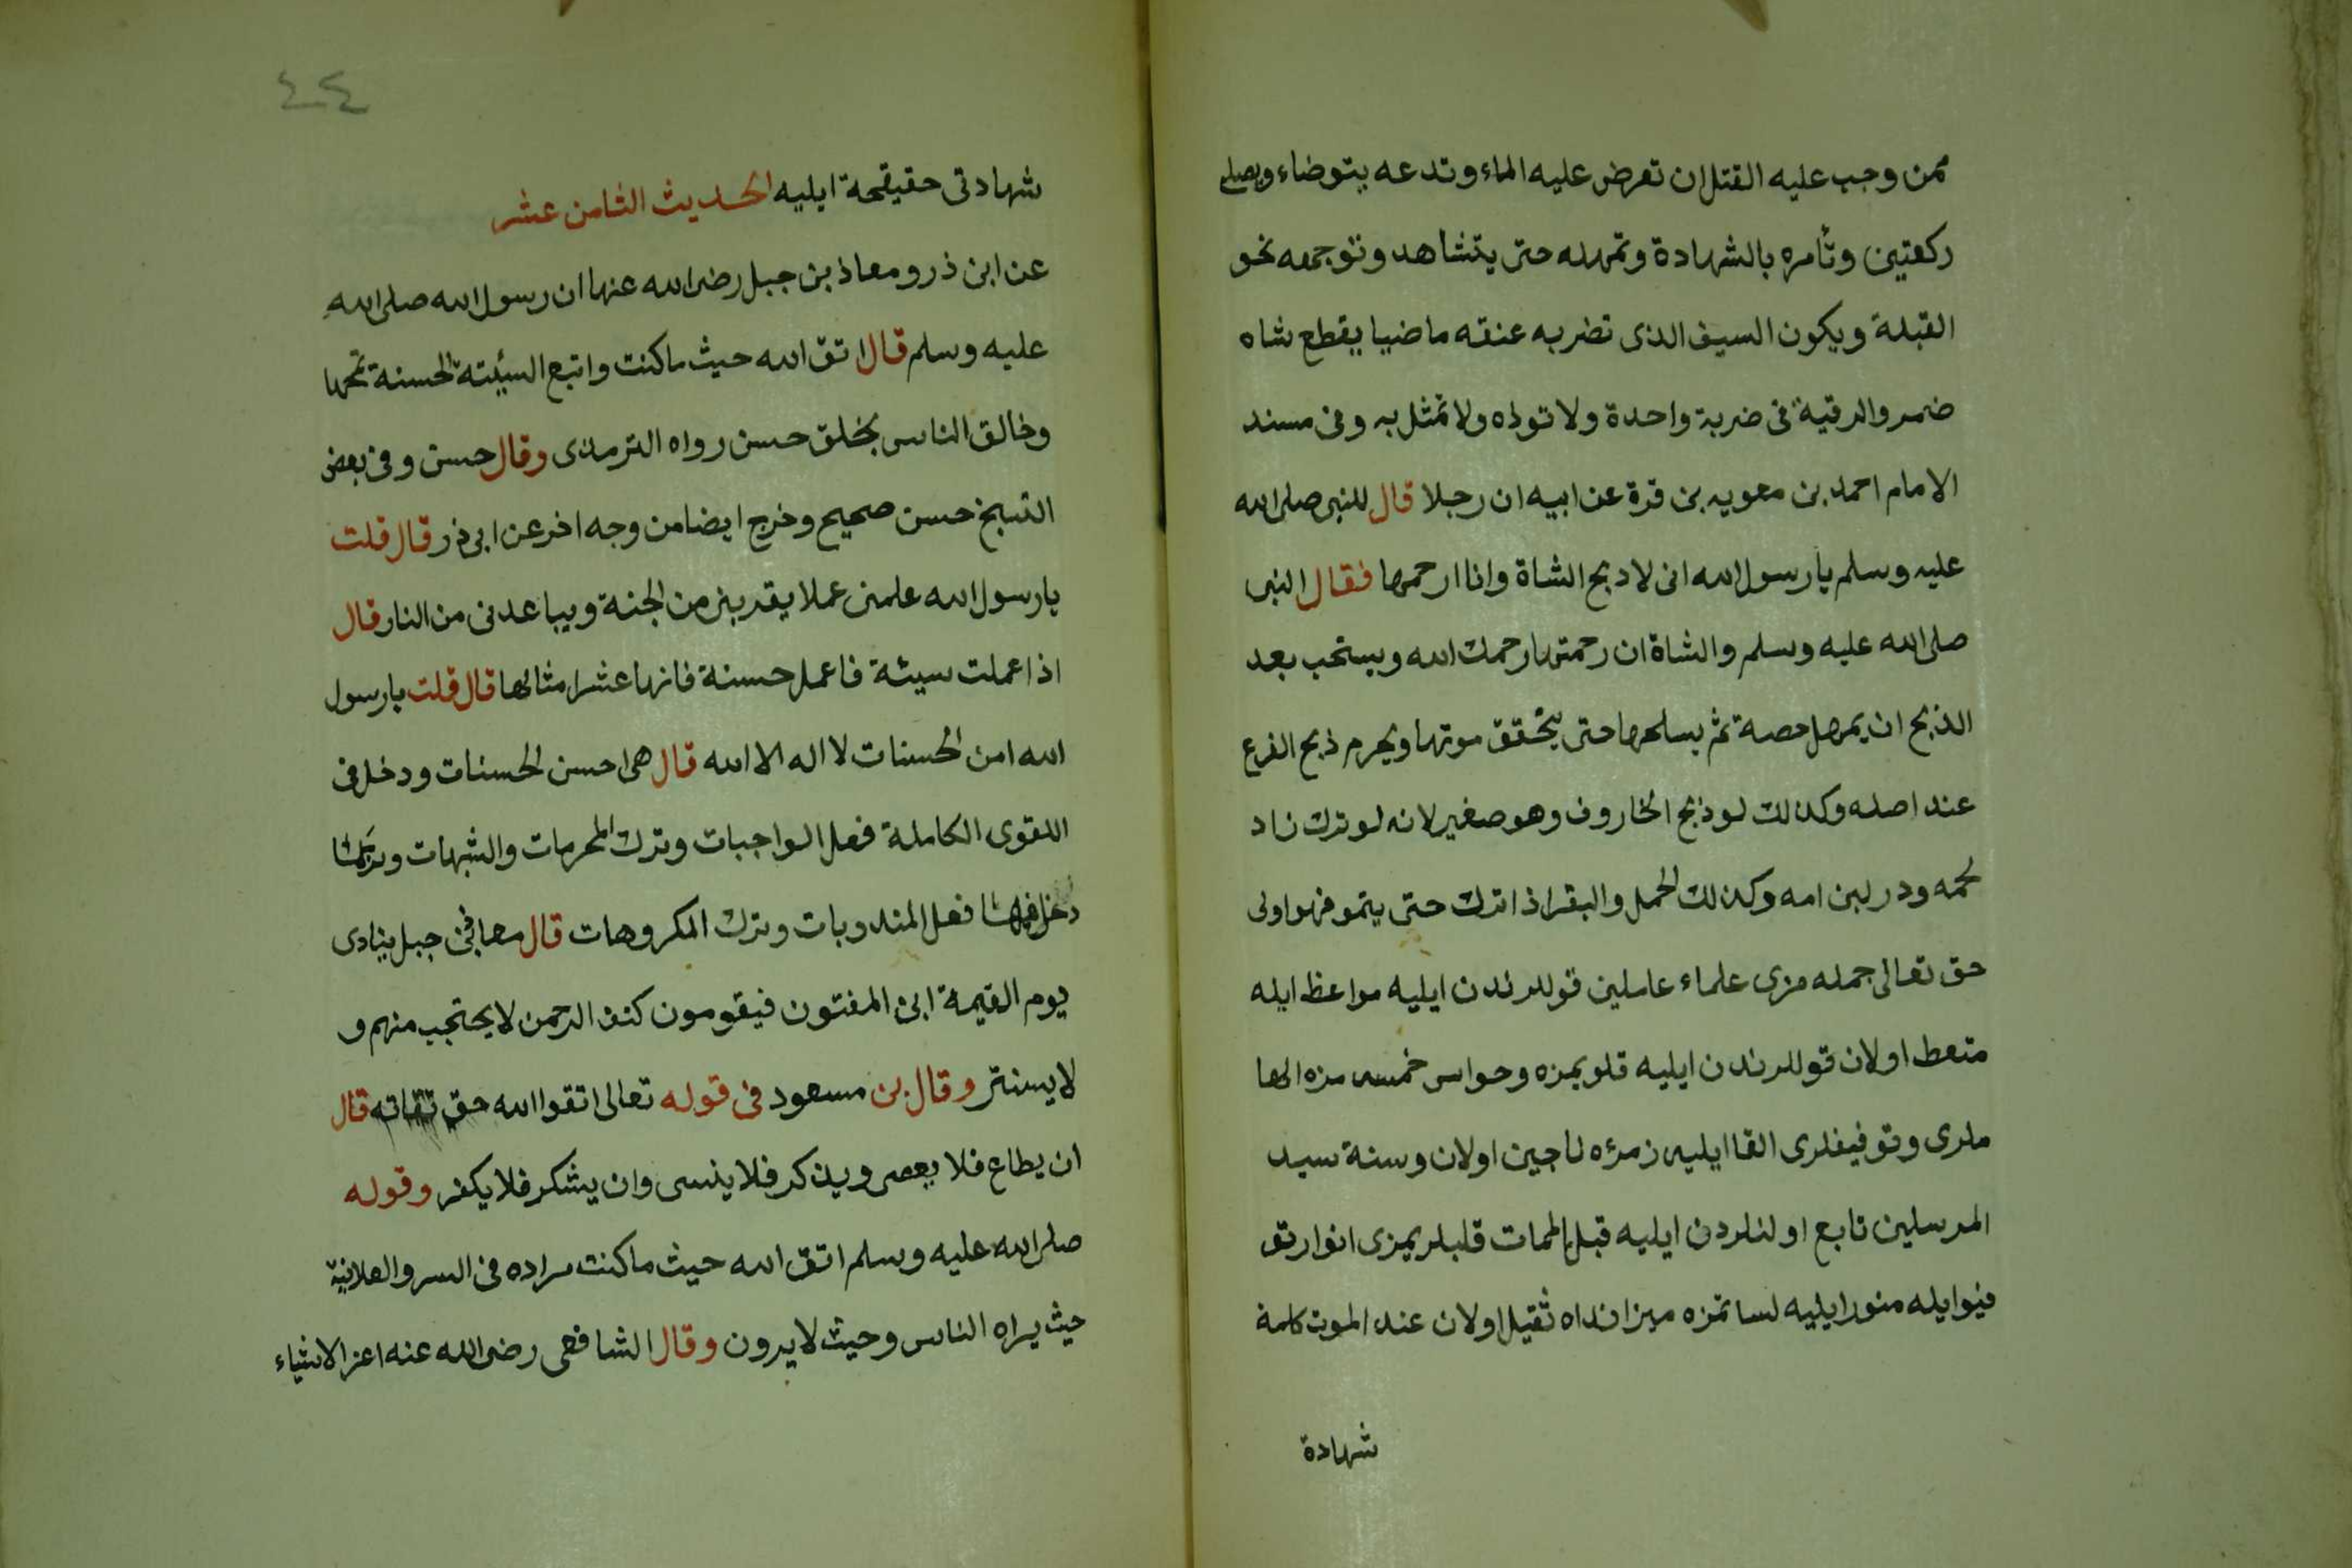 ممن وجب عليه القتل ان تعرض عليه الماء وتدعه يتوضاء ويصلى
ركعتين وتأمره بالشهادة وتمهله حتى يتشاهد وتوجهه نحو
القبلة ويكون السيف الذى تضربه عنقه ماضيا يقطع شاه
ضمر والرقية فى ضربة واحدة ولا تولاه ولا تمثل به وفى مسند
الامام احمد بن معويه بن قرة عن ابيه ان رجلا قال للنبى صلى الله
عليه وسلم يا رسول الله انى لا دبح الشاة وانا ارحمها فقال النبى
صلى الله عليه وسلم والشاة ان رحمتها رحمك الله ويستحب بعد
الذبح ان يمهل حصة ثم يسلحها حتى يتحقق موتها ويحرم ذبح الفرع
عند اصله وكذلك لو ذبح الخاروف وهو صغير لانه لو ترك زاد
لحمه ودر لبن امه وكذلك الحمل والبقر اذا ترك حتى ينمو فهو اولى
حق تعالى جمله مزى علماء عاملين قوللرندن ايليه مواعظ ايله
متعط اولان قوللرندن ايليه قلوبمزه وحواس خمسه مزه الها
ملرى وتوفيقلرى القا ايليه زمرۀ ناجين اولان وسنة سيد
المرسلين تابع اولنلردن ايليه قبل الممات قلبلريمزى انوار تق
فيوايله منور ايليه لسانمزه ميزانداه ثقيل اولان عند الموت كلمة
شهادة
٤٤
شهادتى حقيقحة ايليه الحديث الثامن عشر
عن ابن ذر ومعاذ بن جبل رضى الله عنها ان رسول الله صلى الله
عليه وسلم قال اتق الله حيث ما كنت واتبع السيئته الحسنة تمحها
وخالق الناس بخلق حسن رواه الترمذى وقال حسن وفى بعض
النسخ حسن صحيح وخرج ايضا من وجه اخر عن ابى ذر قال قلت
يا رسول الله علمنى عملا يقربنى من الجنة ويباعدنى من النار قال
اذا عملت سيئة فاعمل حسنة فانها عشر امثالها قال قلت يا رسول
الله امن الحسنات لا اله الا الله قال هى احسن الحسنات ودخل فى
التقوى الكاملة فعل الواجبات وترك المحرمات والشبهات وربما
دخل فيها فعل المندوبات وترك المكروهات قال معاذ بن جبل ينادى
يوم القيمة ابن المفتون فيقومون كنف الرحمن لا يحتجب منهم و
لا يستتر وقال بن مسعود فى قوله تعالى اتقوا الله حق تقاته قال
ان يطاع فلا يعصى ويذكر فلا ينسى وان يشكر فلا يكفر وقوله
صلى الله عليه وسلم اتق الله حيث ما كنت مراده فى السر والعلانية
حيث يراه الناس وحيث لا يرون وقال الشافعى رضى الله عنه اعز الاشياء